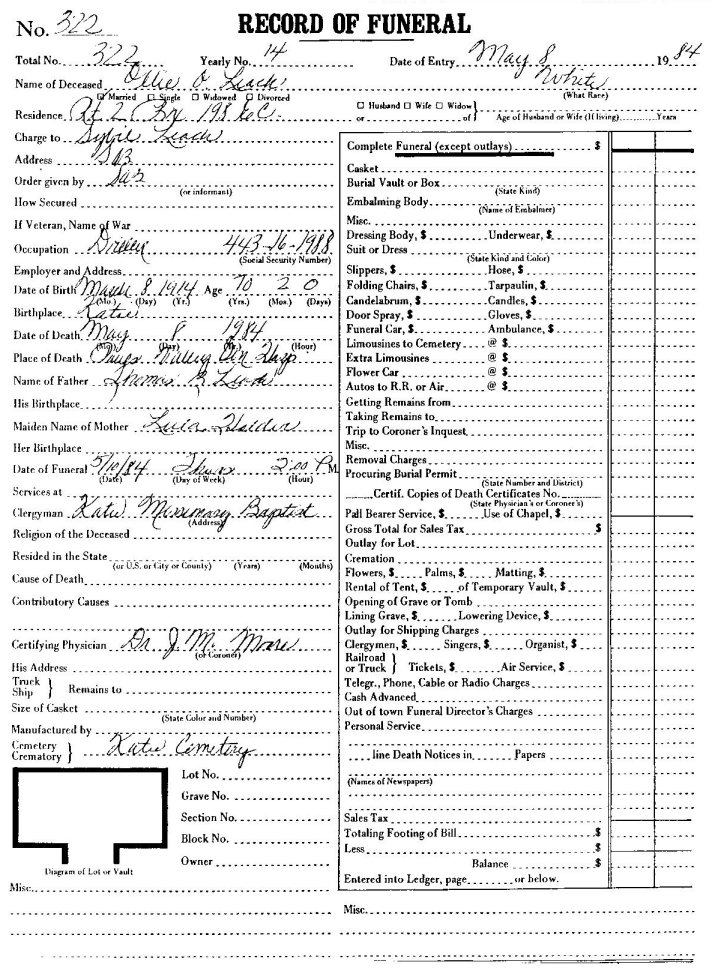 No. 322 RECORD OF FUNERAL
Total No. 322 Yearly No. 14 Date of Entry May 8 1984
Name of Deceased Ollie O. Leach White
☑ Married ☐ Single ☐ Widowed ☐ Divorced (What Race)
Residence Rt 2 Bx 198
☐ Husband ☐ Wife ☐ Widow
or of Age of Husband or Wife (If living) Years
Charge to Sylvie Leach
Address
Order given by
(or informant)
How Secured
If Veteran, Name of War
Occupation 443-16-1988
(Social Security Number)
Employer and Address
Date of Birth March 8 1914 Age 70 2 0
(Mo.) (Day) (Yr.) (Yrs.) (Mos.) (Days)
Birthplace Katie
Date of Death May 8 1984
(Mo.) (Day) (Yr.) (Hour)
Place of Death Pauls Valley Gen Hosp
Name of Father Thomas B. Leach
His Birthplace
Maiden Name of Mother
Her Birthplace
Date of Funeral 5/10/84 Thurs 2:00 P.M.
(Date) (Day of Week) (Hour)
Services at
Clergyman Katie Missionary Baptist
(Address)
Religion of the Deceased
Resided in the State
(or U.S. or City or County) (Years) (Months)
Cause of Death
Contributory Causes
Certifying Physician Dr. J. M. Moore
(or Coroner)
His Address
Truck
Ship Remains to
Size of Casket
(State Color and Number)
Manufactured by
Cemetery
Crematory Katie Cemetery
Lot No.
Grave No.
Section No.
Block No.
Owner
Diagram of Lot or Vault
Misc.
Complete Funeral (except outlays) $
Casket
Burial Vault or Box
(State Kind)
Embalming Body
(Name of Embalmer)
Misc.
Dressing Body, $ Underwear, $
Suit or Dress
(State Kind and Color)
Slippers, $ Hose, $
Folding Chairs, $ Tarpaulin, $
Candelabrum, $ Candles, $
Door Spray, $ Gloves, $
Funeral Car, $ Ambulance, $
Limousines to Cemetery @ $
Extra Limousines @ $
Flower Car @ $
Autos to R.R. or Air @ $
Getting Remains from
Taking Remains to
Trip to Coroner's Inquest
Misc.
Removal Charges
Procuring Burial Permit
(State Number and District)
Certif. Copies of Death Certificates No.
(State Physician's or Coroner's)
Pall Bearer Service, $ Use of Chapel, $
Gross Total for Sales Tax $
Outlay for Lot
Cremation
Flowers, $ Palms, $ Matting, $
Rental of Tent, $ of Temporary Vault, $
Opening of Grave or Tomb
Lining Grave, $ Lowering Device, $
Outlay for Shipping Charges
Clergymen, $ Singers, $ Organist, $
Railroad
or Truck Tickets, $ Air Service, $
Telegr., Phone, Cable or Radio Charges
Cash Advanced
Out of town Funeral Director's Charges
Personal Service
line Death Notices in Papers
(Names of Newspapers)
Sales Tax
Totaling Footing of Bill $
Less $
Balance $
Entered into Ledger, page or below.
Misc.